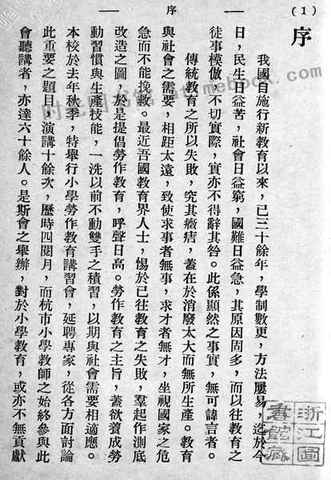 (1)
序
序
我國自施行新教育以來，已三十餘年，學制數更，方法屢易，迄於今
日，民生日益苦，社會日益窮，國難日益急，其原因固多，而以往教育之
徒事模倣，不切實際，實亦不得辭其咎。此係顯然之事實，無可諱言者。
傳統教育之所以失敗，究其癥痞，蓋在於消廢太大而無所生產。教育
與社會之需要，相距太遠，致使求事者無事，求才者無才，坐視國家之危
急而不能挽救。最近吾國教育界人士，惕於已往教育之失敗，羣起作澈底
改造之圖，於是提倡勞作教育，呼聲日高。勞作教育之主旨，蓋欲養成勞
動習慣與生產技能，一洗以前不動雙手之積習，以期與社會需要相適應。
本校於去年秋季，特舉行小學勞作教育講習會，延聘專家，從各方面討論
此重要之題目，演講十餘次，歷時四閱月，而杭市小學教師之始終參與此
會聽講者，亦達六十餘人。是斯會之舉辦，對於小學教育，或亦不無貢獻
浙江圖
書館藏